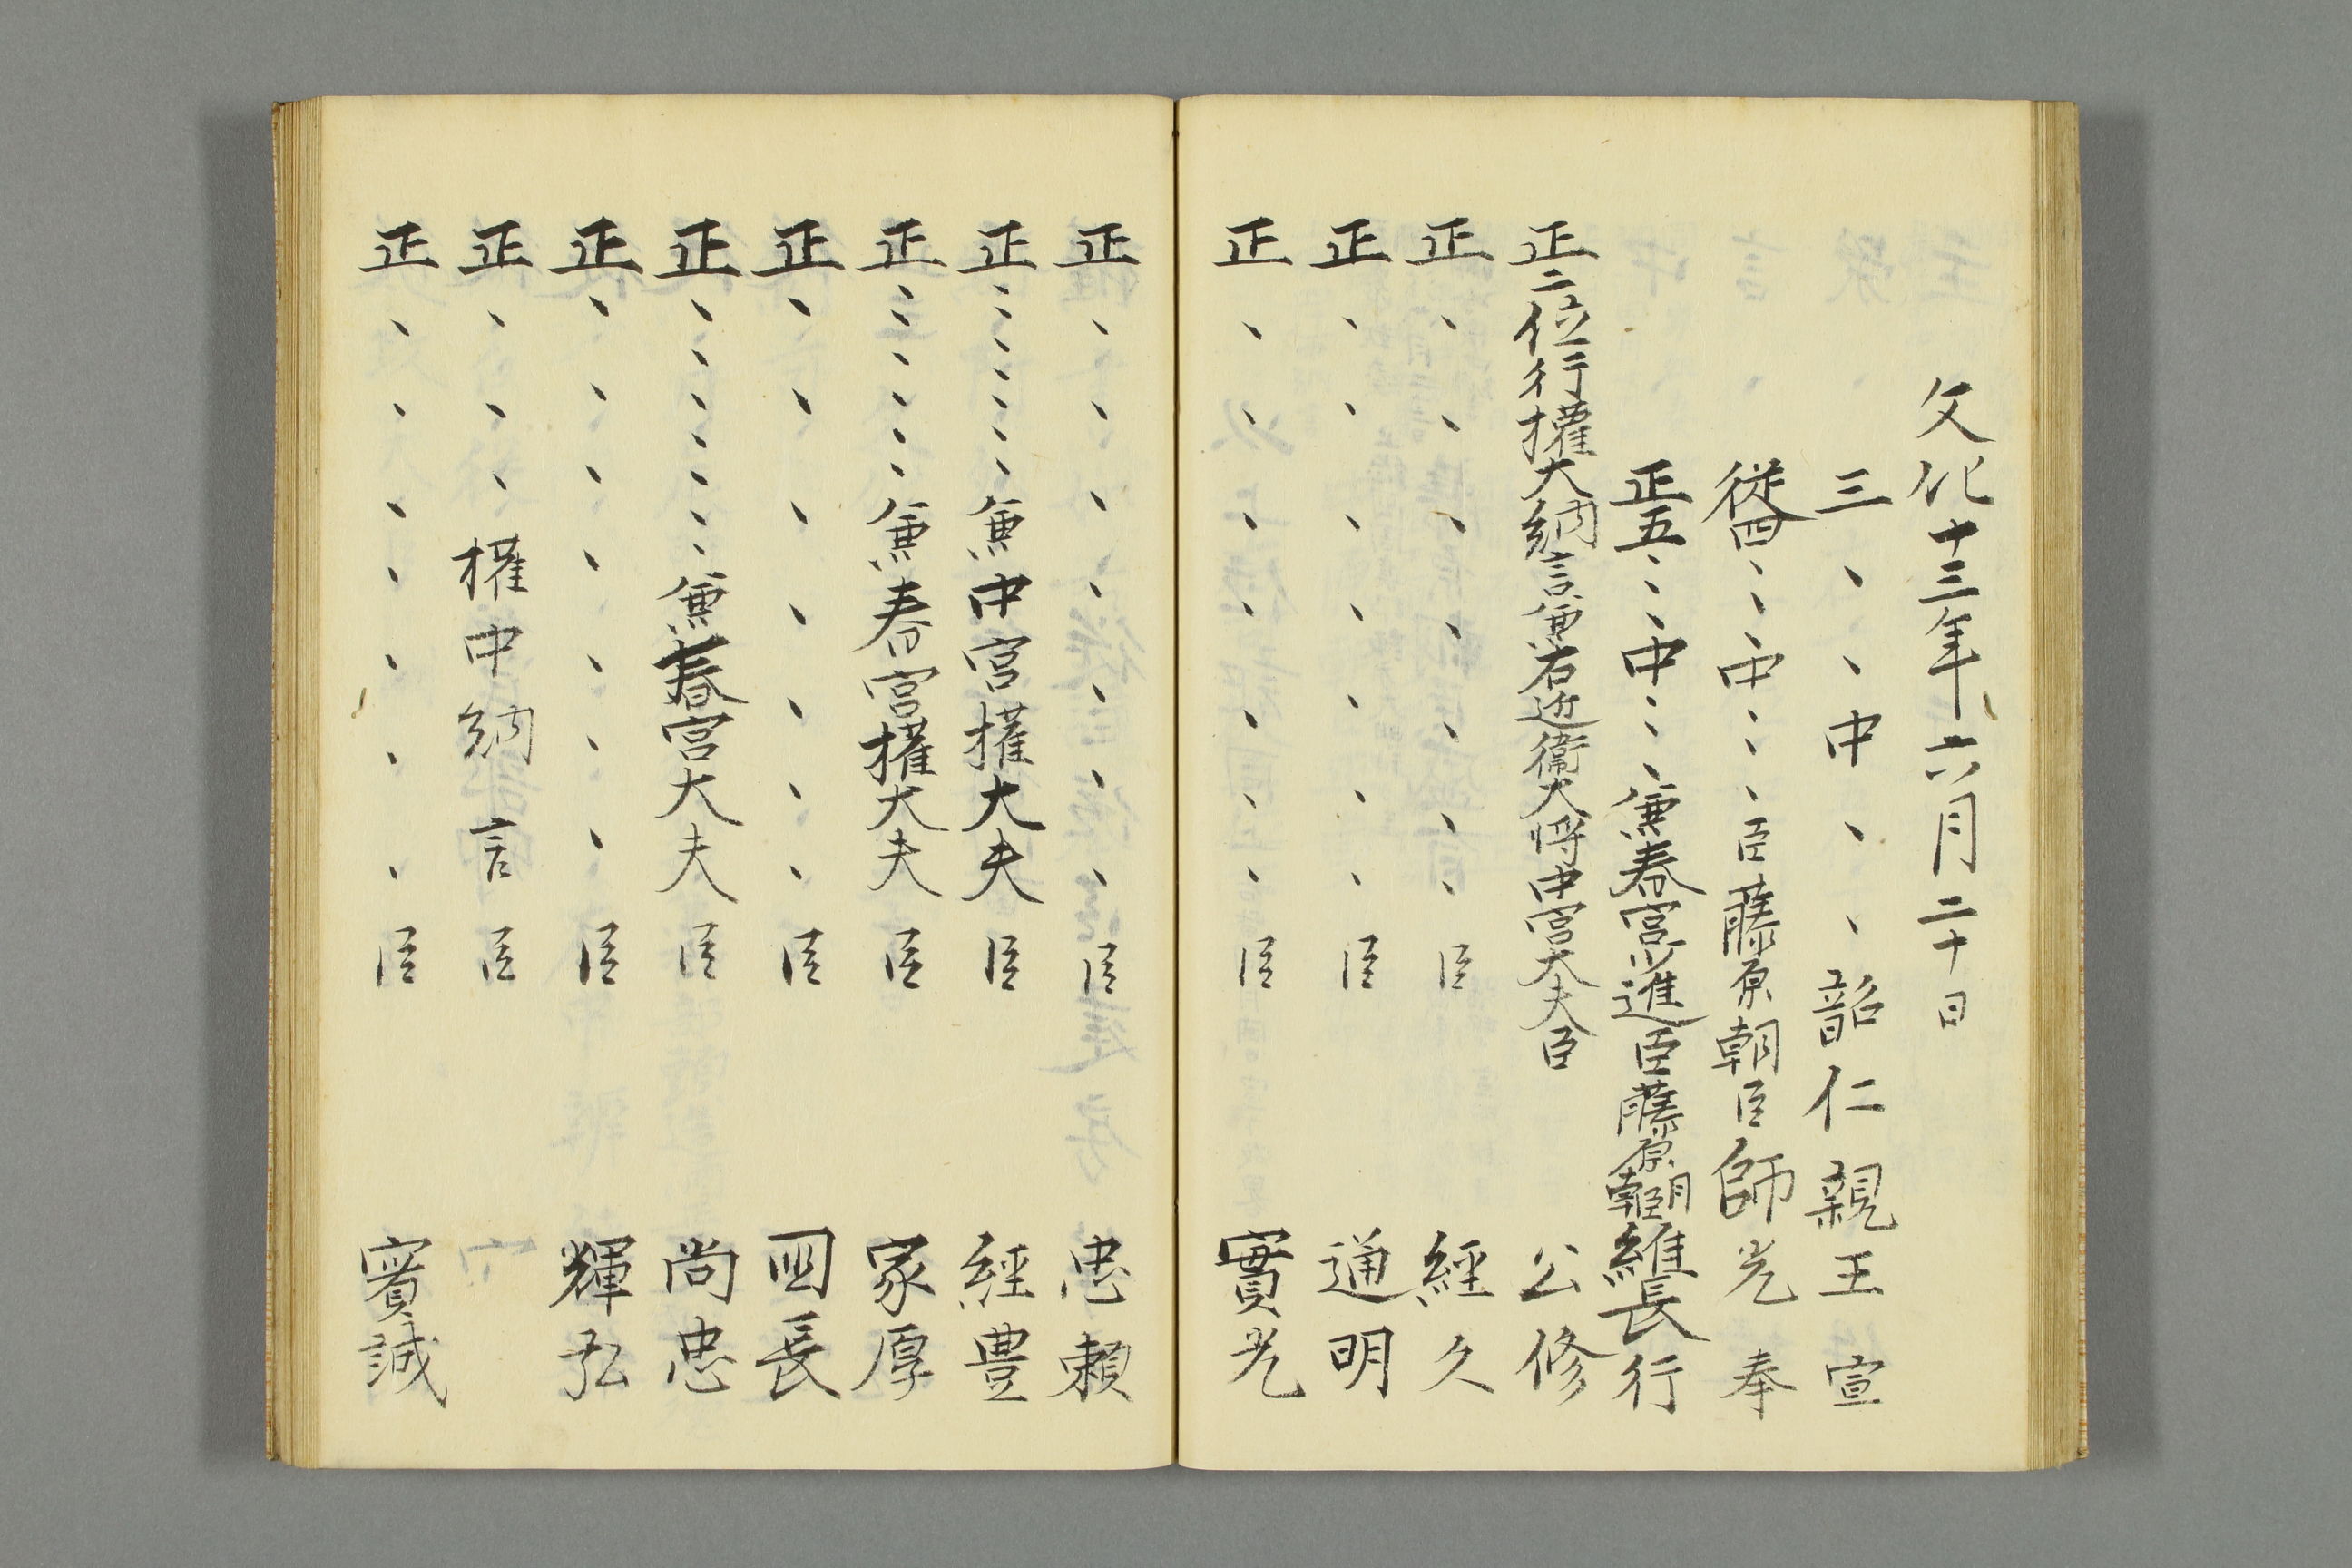 文化十三年六月二十日
三、、中、、韶仁親王宣
従四、、、中、、、臣藤原朝臣師光奉
正五、、、中、、、兼春宮少進臣藤原朝臣維長行
正二位行権大納言兼右近衛大将中宮大夫臣 公修
正、、、、、、、臣 經久
正、、、、、、、臣 通明
正、、、、、、、臣 實光
正、、、、、、、臣 忠頼
正、、、、、、兼中宮権大夫臣 經豊
正、、、、、、兼春宮権大夫臣 家厚
正、、、、、、、臣 国長
正、、、、、、、兼春宮大夫臣 尚忠
正、、、、、、、臣 輝弘
正、、、権中納言臣
正、、、、、、、臣 實誠